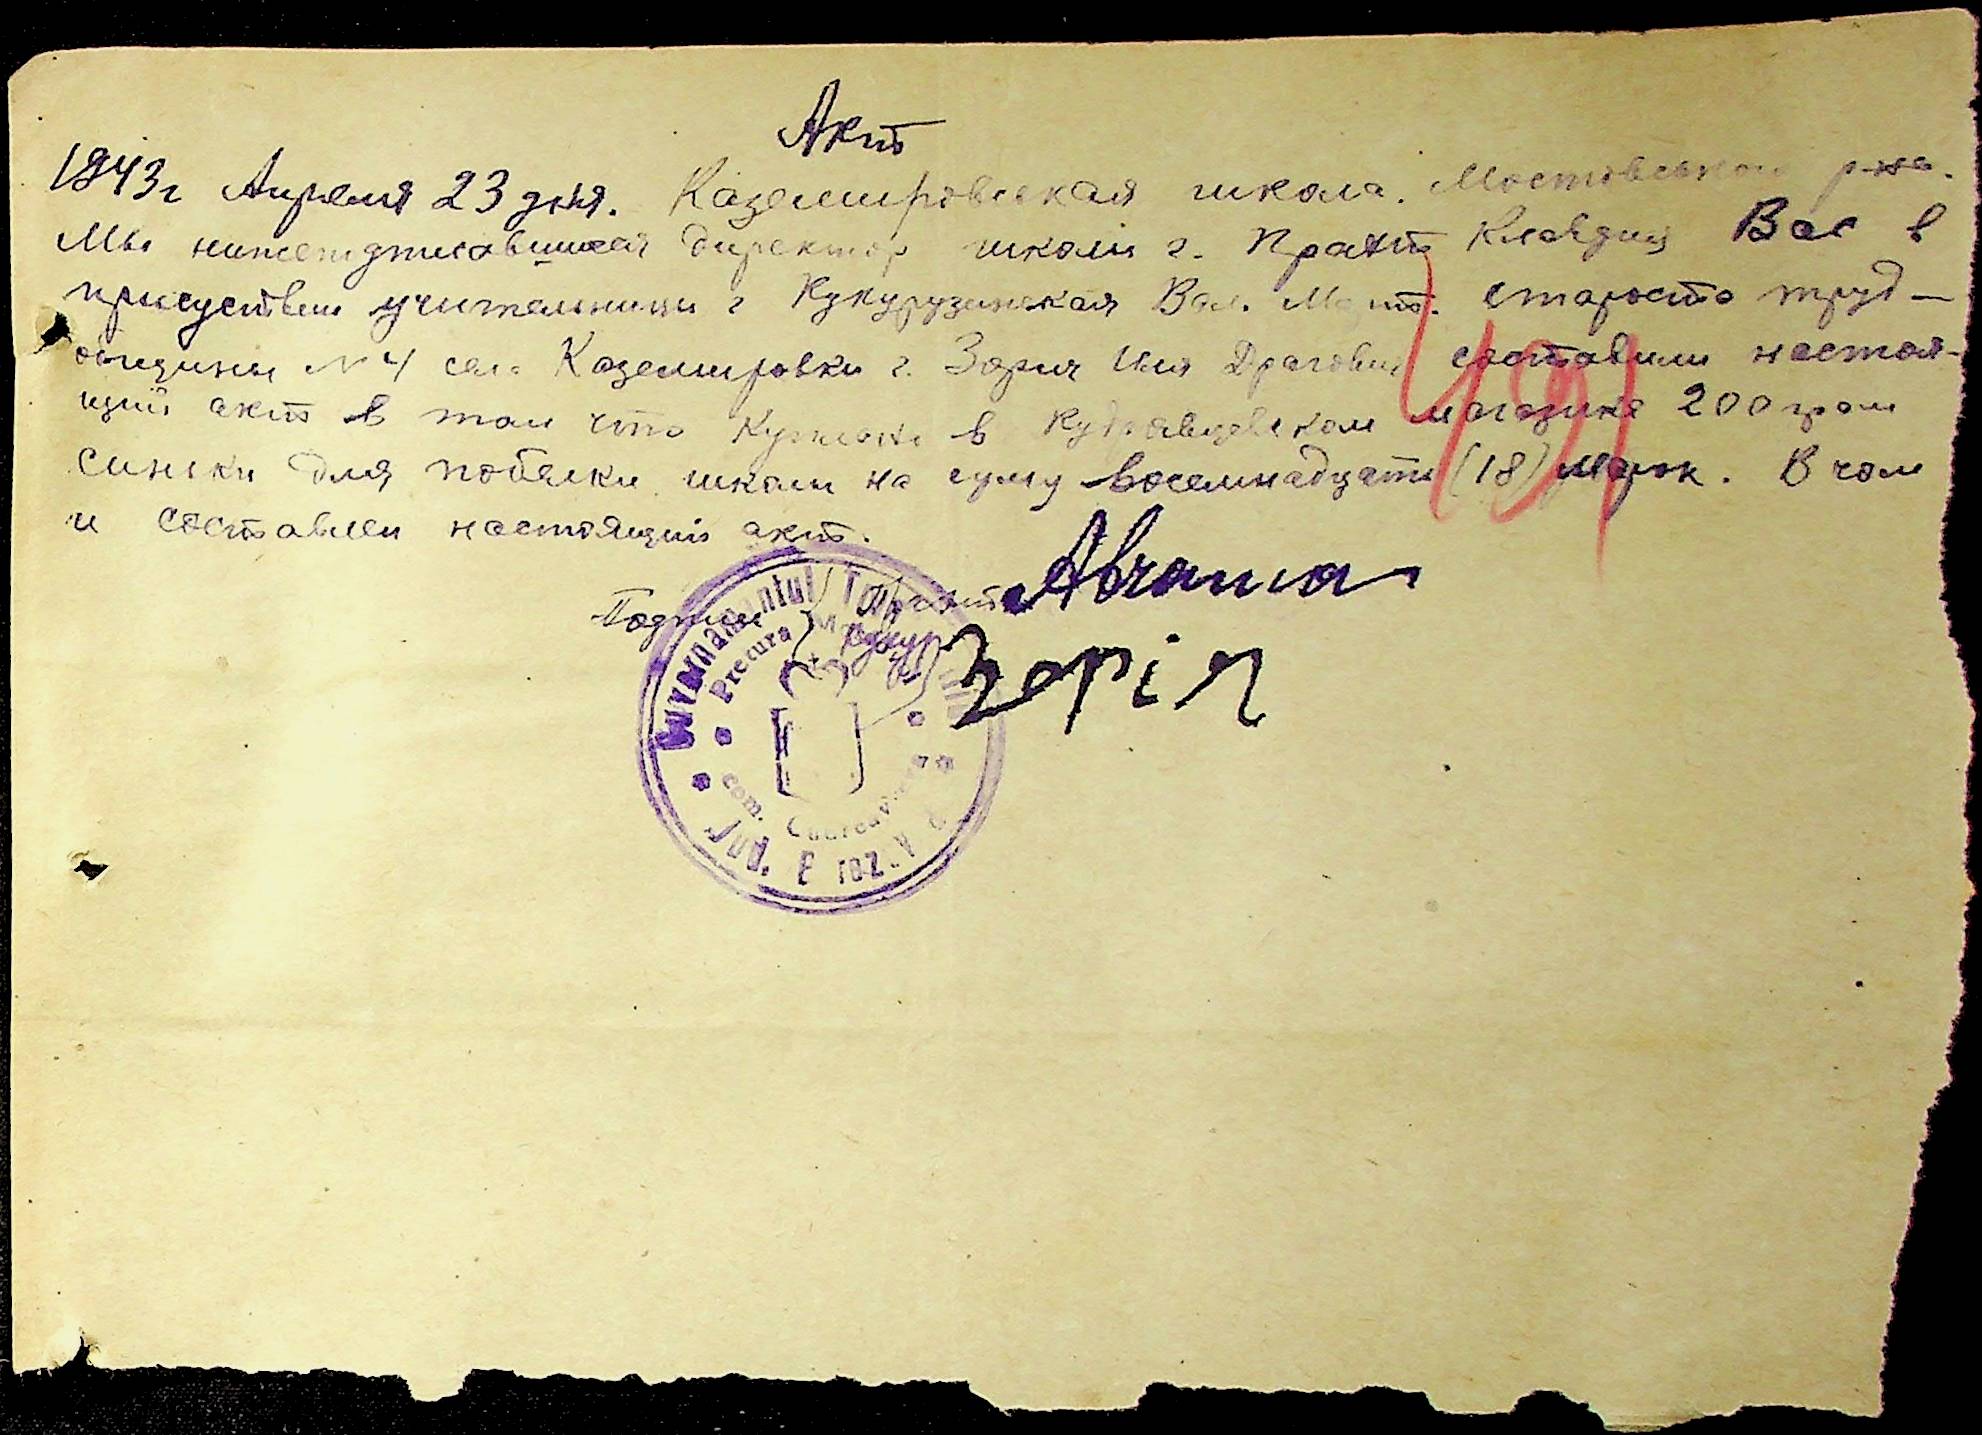 Акт
1943г Апреля 23 дня. Каземировская школа. Мостовского р-на.
Мы нижеподписавшиеся директор школи г. Клавдий Вас в
присуствии учительници г Кукурузинская Вал. староста труд-
общины № 4 села Каземировки г. Зория Иля составили настоя-
щий акт в том что куплено в Кудрявцевском магазине 200 грам
синьки для побелки школи на суму восемнадцать (18) марок. В чом
и составлен настоящий акт.
491
Подписи
Зорія
Guvernamantul
Precura
com.
Jud.